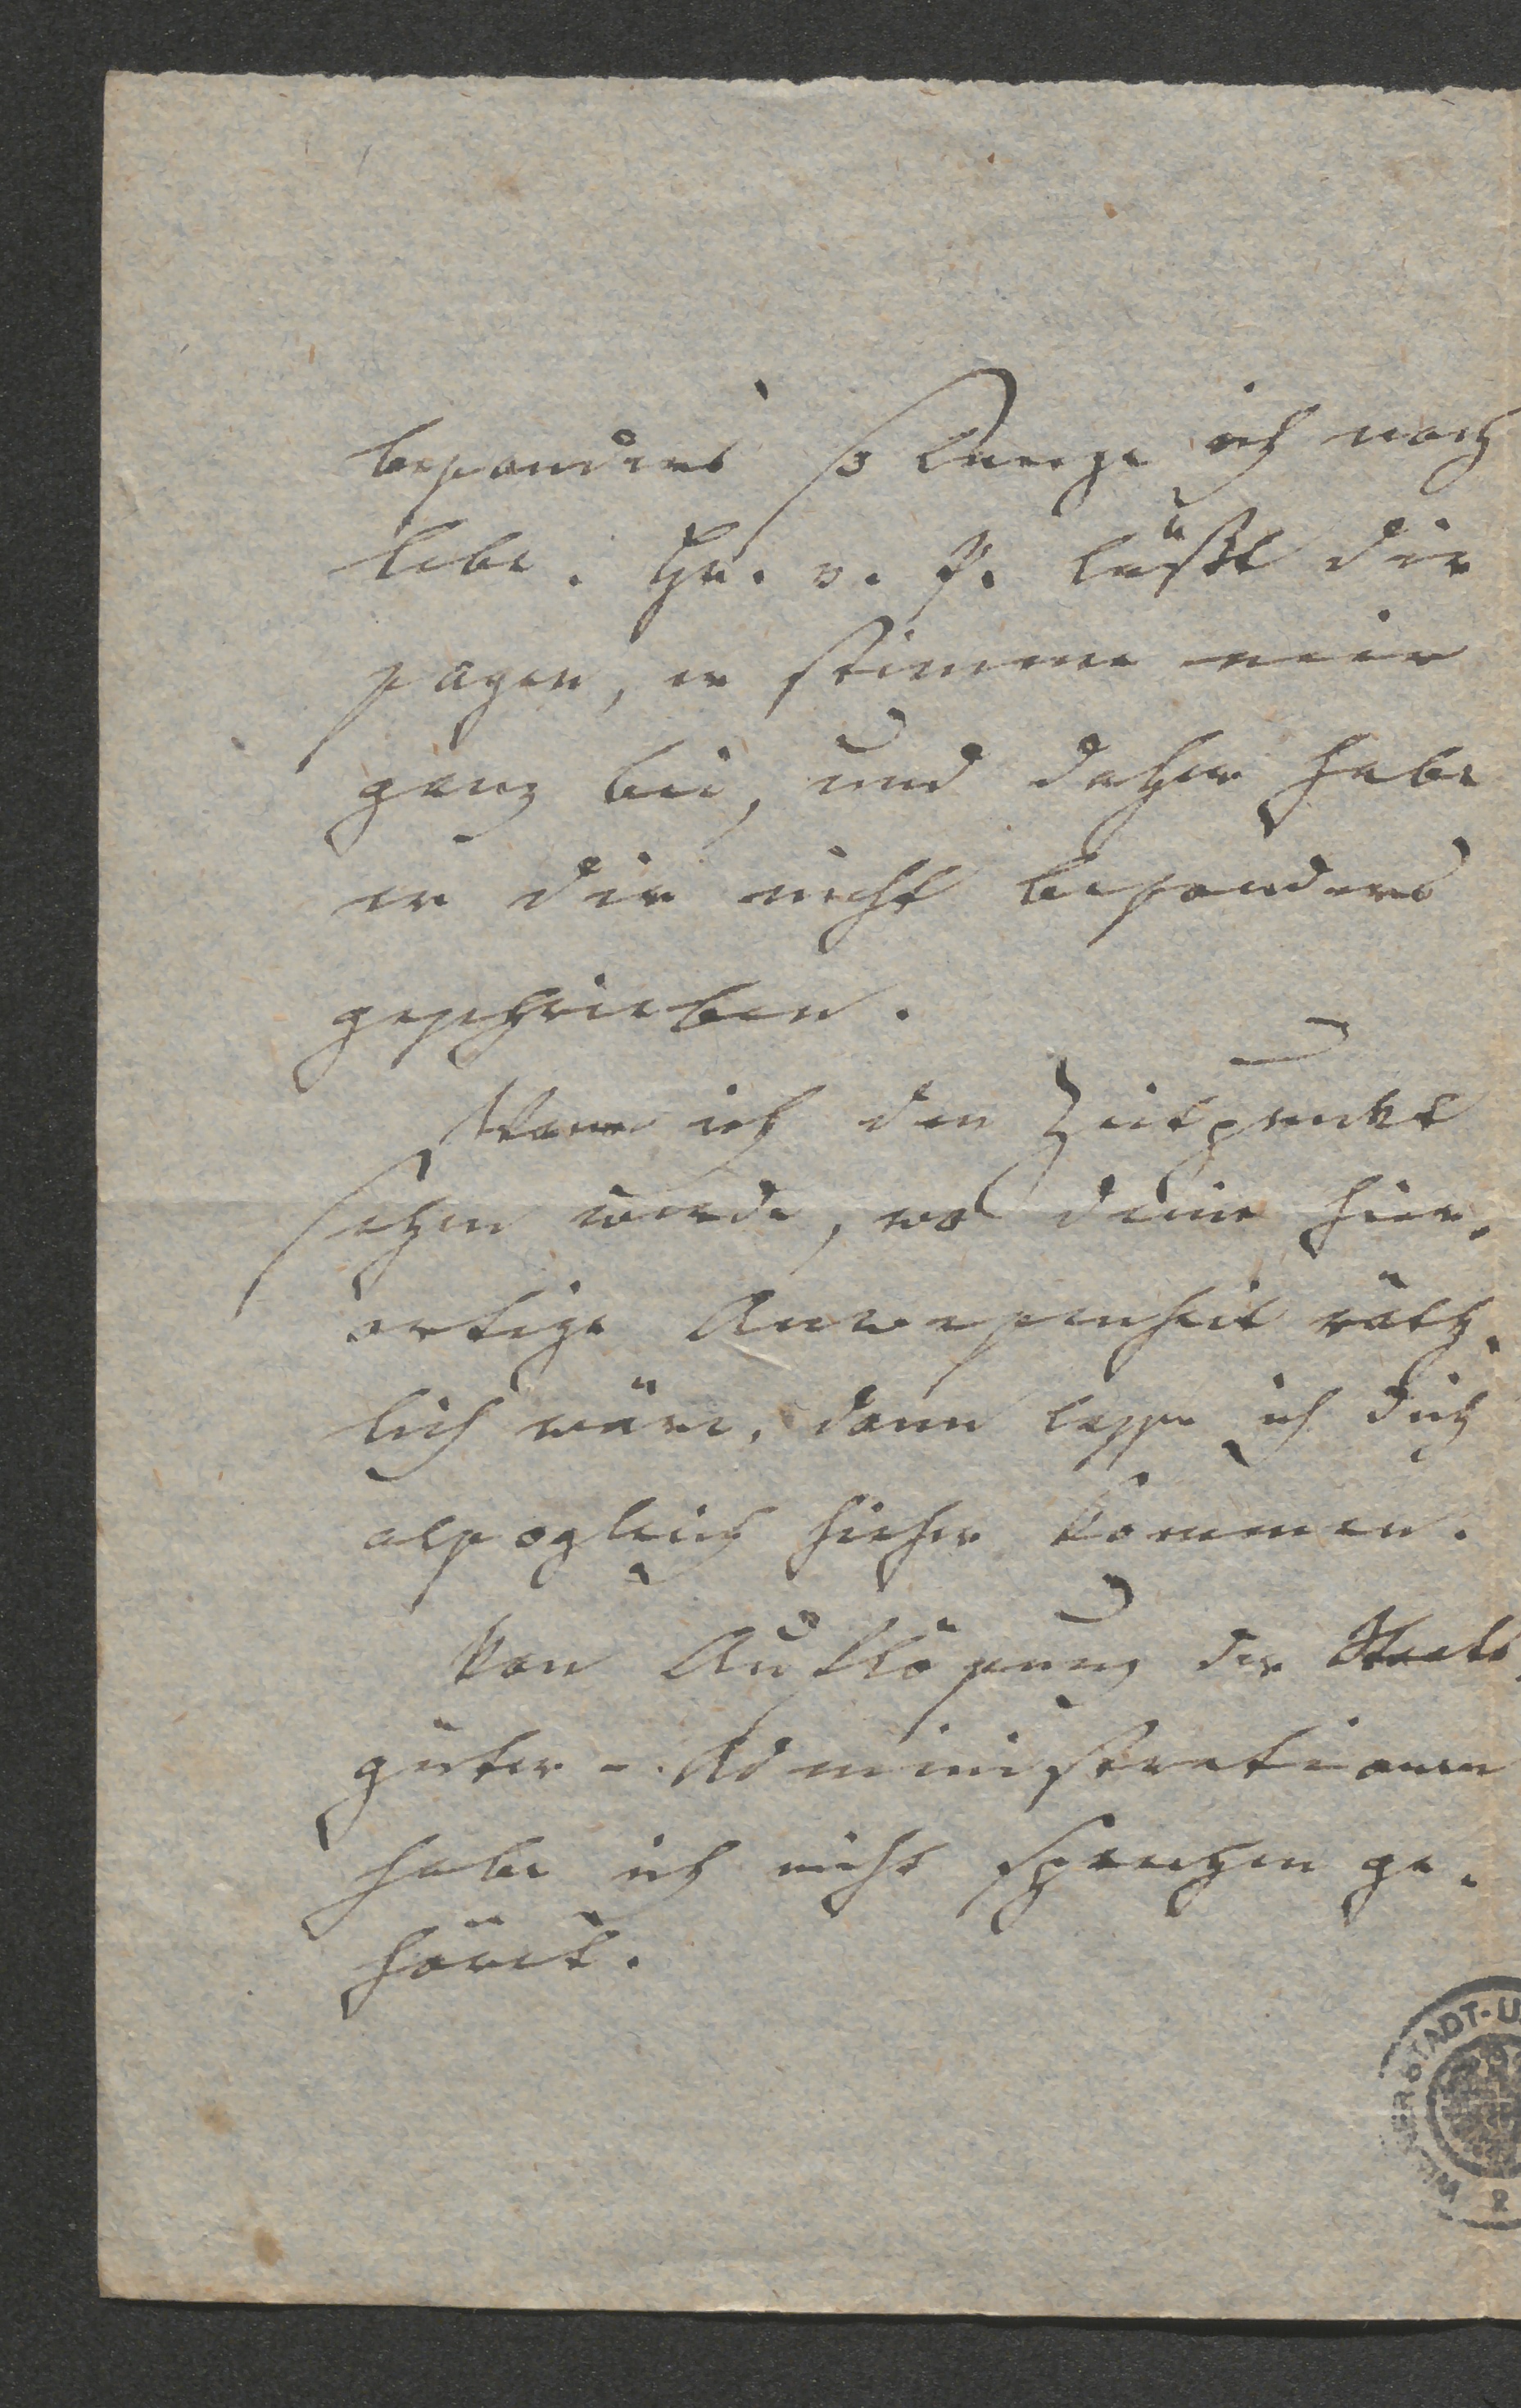 besonders so lange ich noch
lebe. Hr. v. P. läßt dir
sagen, er stimme mir
ganz bei, und daher habe
er dir nicht besonders
geschrieben.
Wenn ich den Zeitpunkt
sehen werde, wo deine hier-
ortige Anwesenheit räth-
lich wäre, dann lasse ich dich
alsogleich hieher kommen.
Von Auflösung der Staats-
güter-Administrationen
habe ich nicht sprechen ge-
hört.
ER STADT-U
2